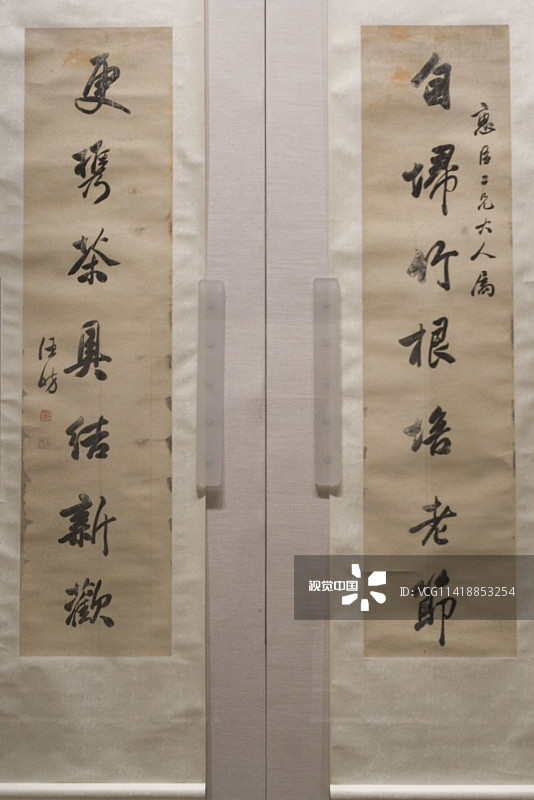 惠臣二兄大人属
自埽竹根培老節
更携茶具結新歡
汪昉
视觉中国
ID: VCG11418853254